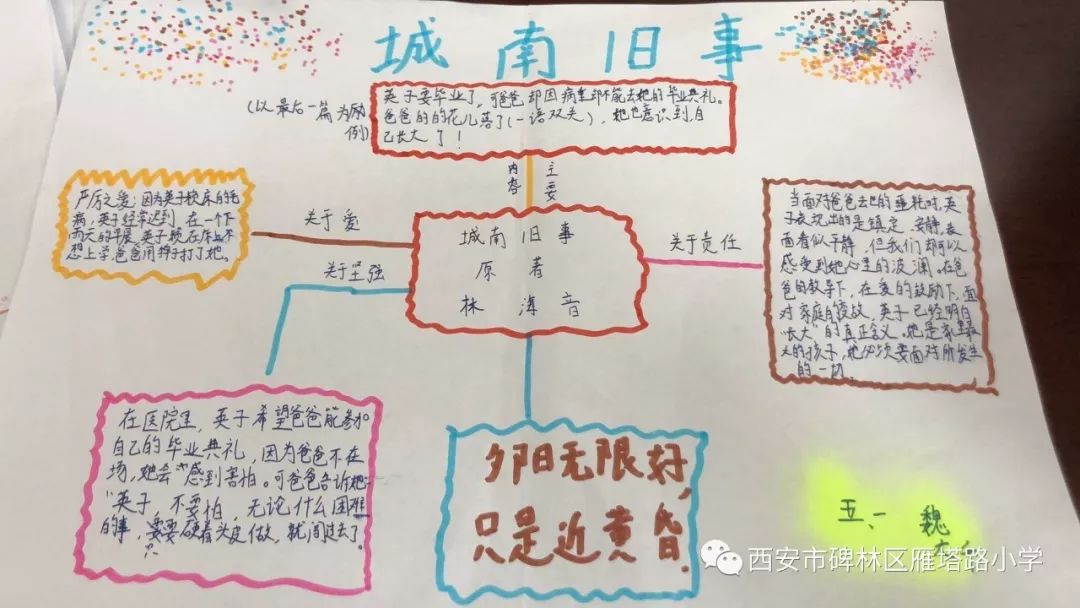 城南旧事
(以最后一篇为励
例)
英子要毕业了，可爸爸却因病重却不能去她的毕业典礼。
爸爸的的花儿落了(一语双关)，她也意识到自
己长大了！
主要
内容
严厉之爱：因为英子赖床的毛
病，英子经常迟到，在一个下
雨天的早晨，英子赖在床上不
想上学，爸爸用掸子打了她。
关于爱
关于坚强
城南旧事
原著
林海音
关于责任
当面对爸爸去世的噩耗时，英
子表现出的是镇定、安静，表
面看似平静，但我们却可以
感受到她心里的波澜。在爸
爸的教导下，在爱的鼓励下，面
对家庭的变故，英子已经明白
"长大"的真正含义。她是家里最
大的孩子，她必须要面对所发生
的一切。
在医院里，英子希望爸爸能参加
自己的毕业典礼，因为爸爸不在
场，她会"感到害怕。可爸爸告诉她：
"英子，不要怕，无论什么困难
的事，要要硬着头皮做，就闯过去了。
夕阳无限好，
只是近黄昏.
五、一 魏
西安市碑林区雁塔路小学